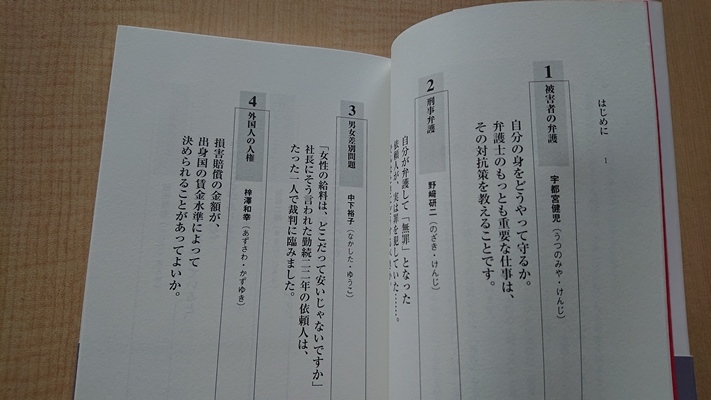 はじめに 1
1 被害者の弁護
宇都宮健児(うつのみや・けんじ)
自分の身をどうやって守るか。
弁護士のもっとも重要な仕事は、
その対抗策を教えることです。
2 刑事弁護
野﨑研二(のざき・けんじ)
自分が弁護して「無罪」となった
依頼人が、実は罪を犯していた……。
3 男女差別問題
中下裕子(なかした・ゆうこ)
「女性の給料は、どこだって安いじゃないですか」
社長にそう言われた勤続二二年の依頼人は、
たった一人で裁判に臨みました。
4 外国人の人権
梓澤和幸(あずさわ・かずゆき)
損害賠償の金額が、
出身国の賃金水準によって
決められることがあってよいか。